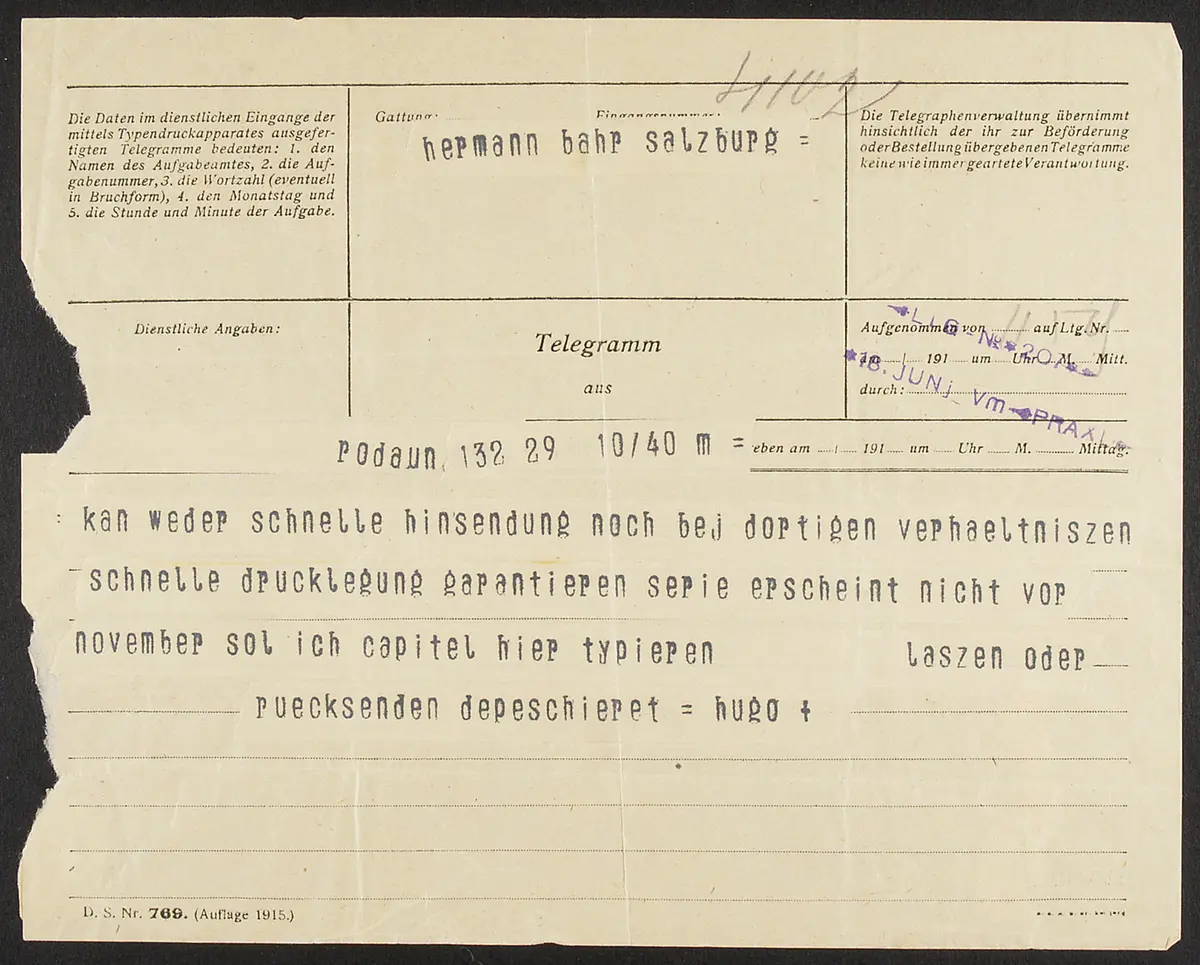 Die Daten im dienstlichen Eingange der
mittels Typendruckapparates ausgefer-
tigten Telegramme bedeuten: 1. den
Namen des Aufgabeamtes, 2. die Auf-
gabenummer, 3. die Wortzahl (eventuell
in Bruchform), 4. den Monatstag und
5. die Stunde und Minute der Aufgabe.
Gattung: Eingangsnummer:
hermann bahr salzburg =
Die Telegraphenverwaltung übernimmt
hinsichtlich der ihr zur Beförderung
oder Bestellung übergebenen Telegramme
keine wie immer geartete Verantwortung.
Dienstliche Angaben:
Telegramm
aus
Aufgenommen von auf Ltg. Nr.
am / 191 um Uhr M. Mitt.
durch:
LTG-No 207
18. JUNI Vm PRAXL
rodaun, 132 29 10/40 m =
eben am / 191 um Uhr M. Mittag.
: kan weder schnelle hinsendung noch bej dortigen verhaeltniszen
schnelle drucklegung garantieren serie erscheint nicht vor
november sol ich capitel hier typieren laszen oder
ruecksenden depeschieret = hugo +
D. S. Nr. 769. (Auflage 1915.)